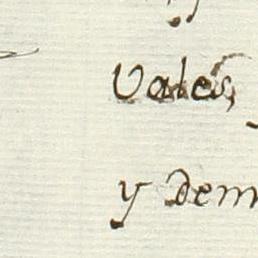 Vales,
y dem